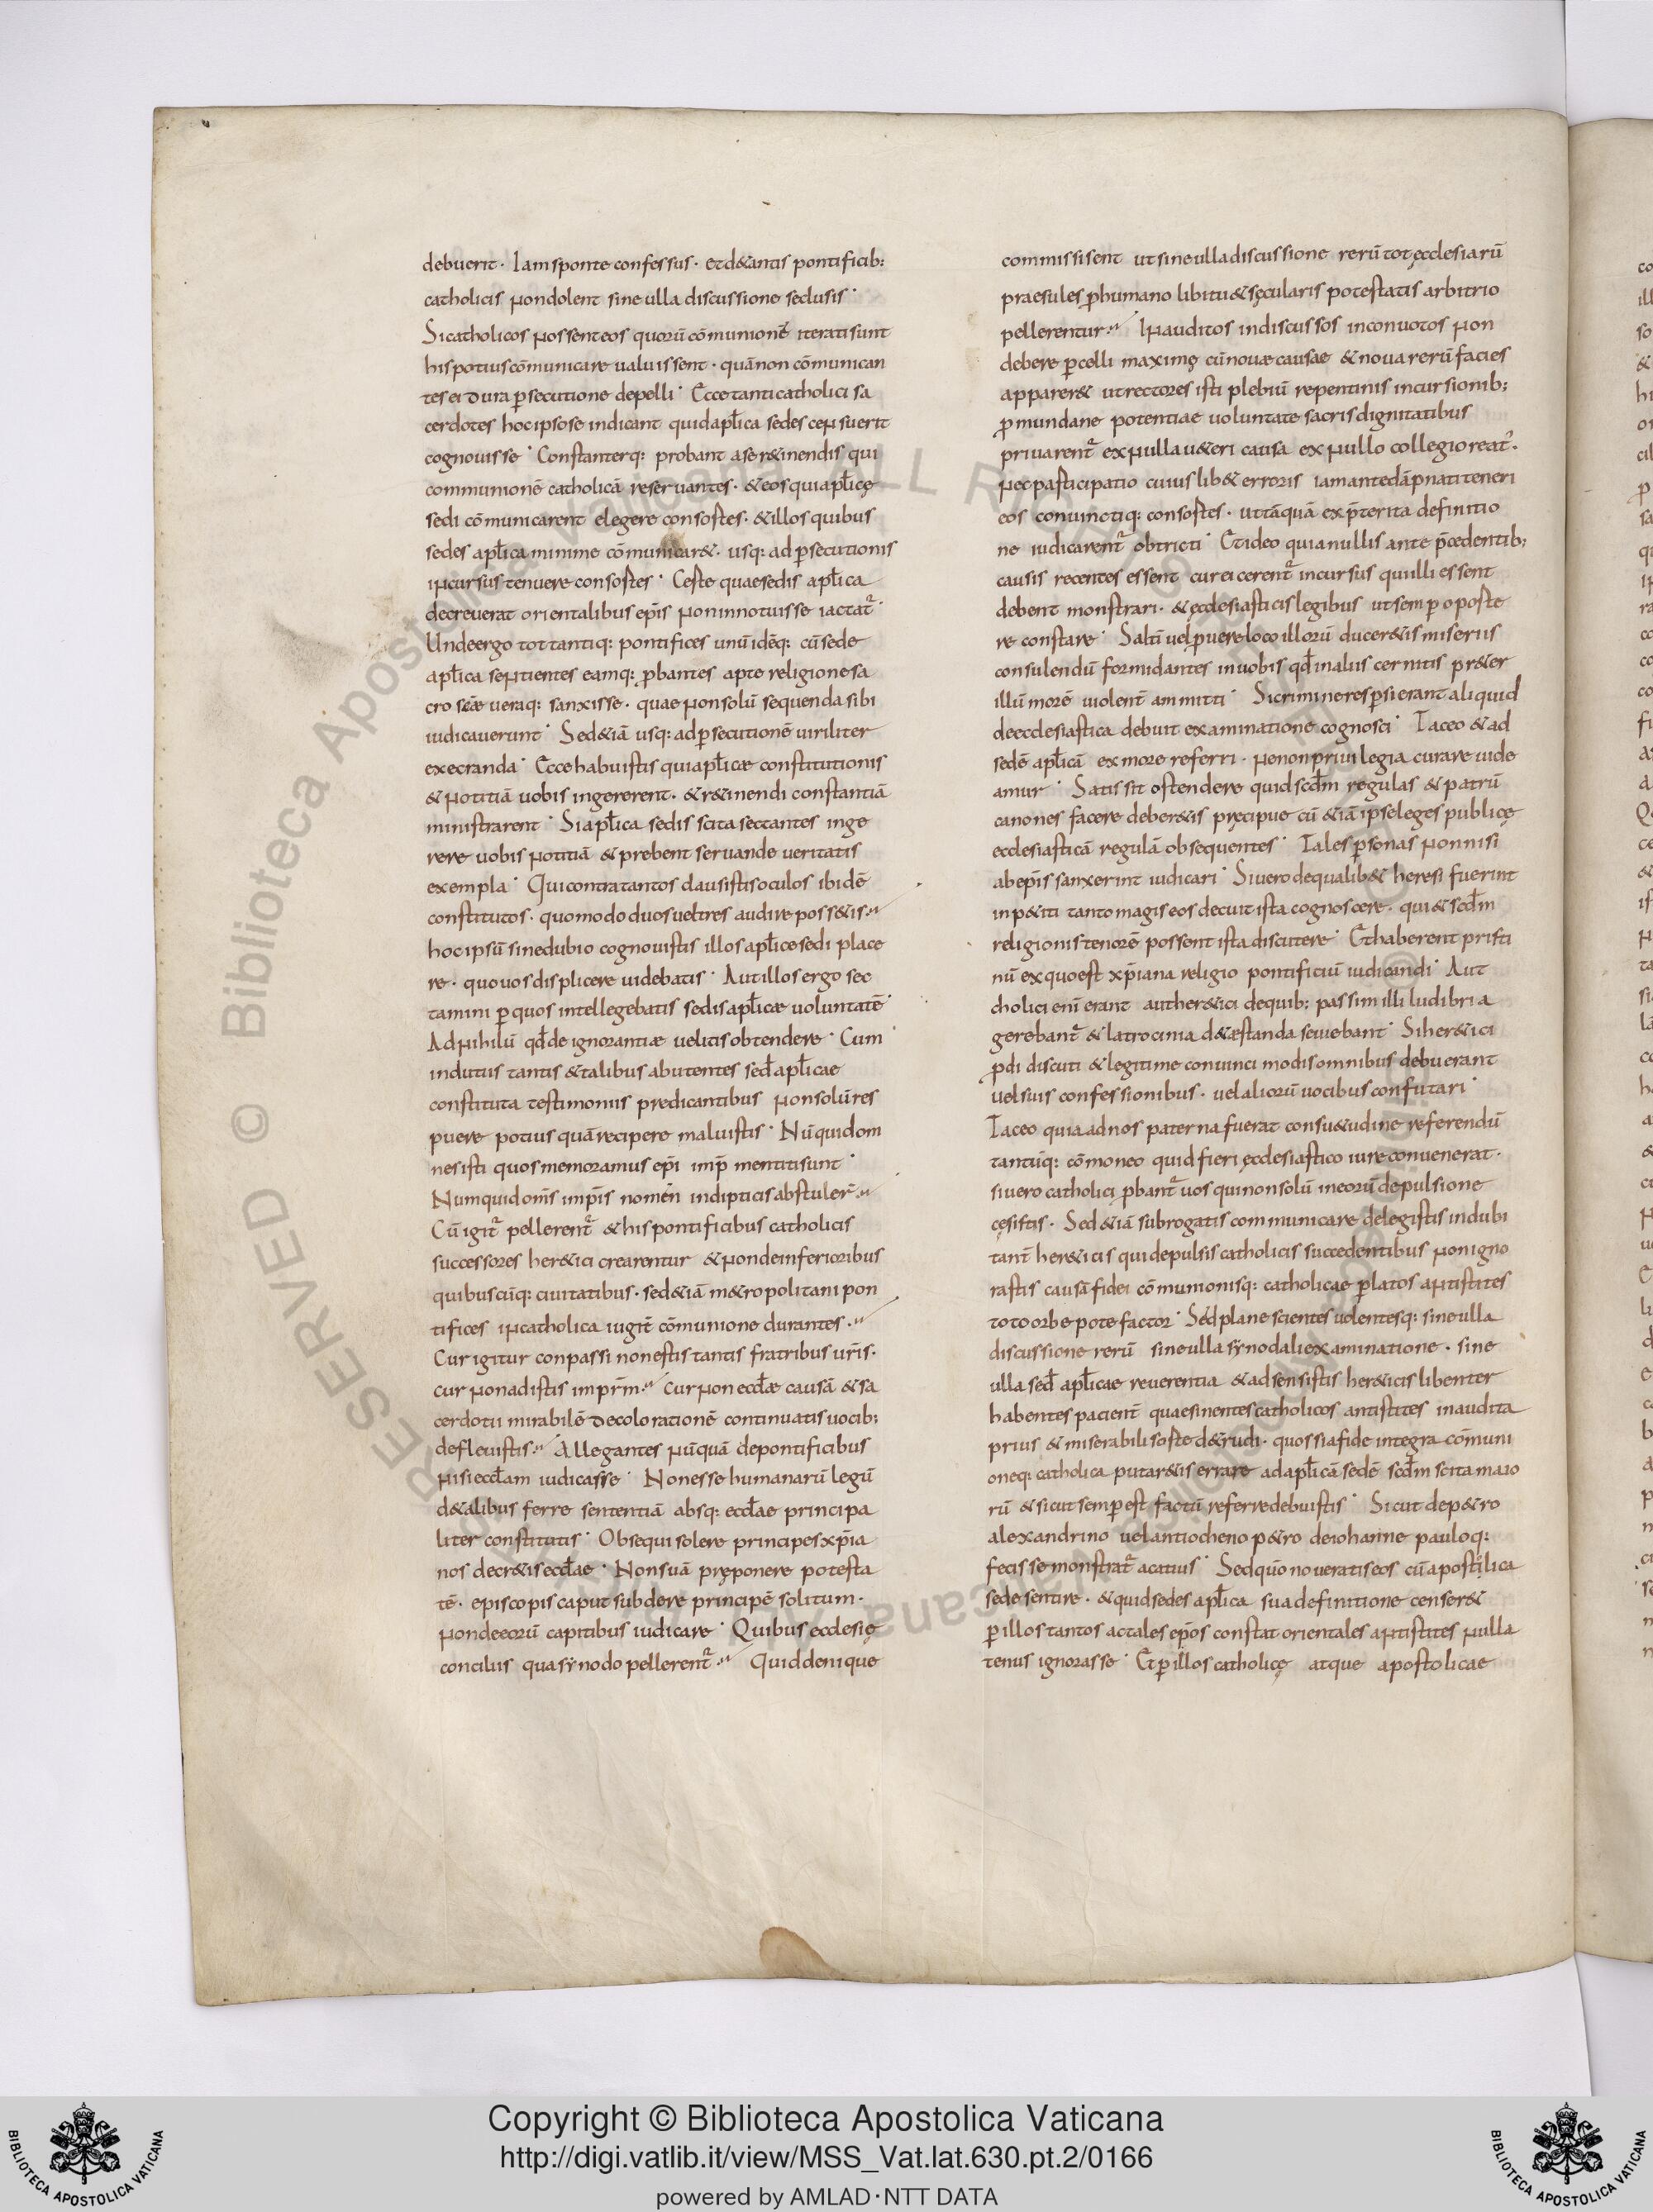 debuerit · Iam sponte confessus · et d&antis pontificib:
catholicis non dolent sine ulla discussione seclusis ·
Si catholicos nossent eos quorū cōmunionē iterati sunt
his potius cōmunicare ualuissent · quā non cōmunican
tes ei dura p̄secutione depelli · Ecce tanti catholici sa
cerdotes hoc ipso se indicant quid apl̄ica sedes censuerit
cognouisse · Constanterq: probant a se r&inendis qui
communionē catholicā reseruantes · & eos qui apl̄icę
sedi cōmunicarent elegere consortes · & illos quibus
sedes apl̄ica minime cōmunicar& · usq: ad p̄secutionis
incursus tenuere consortes · Certe quae sedis apl̄ica
decreuerat orientalibus ep̄is non innotuisse iactat᷑ ·
Unde ergo tot tantiq: pontifices unū idēq: cū sede
apl̄ica sentientes eamq: p̄bantes apte religione sa
cro sc̄æ ueraq: sanxisse · quae non solū sequenda sibi
iudicauerunt · Sed &iā usq: ad p̄secutionē uiriliter
execranda · Ecce habuistis qui apl̄icæ constitutionis
& notitiā uobis ingererent · & r&inendi constantiā
ministrarent · Si apl̄ica sedis scita sectantes inge
rere uobis notitiā & prebent seruande ueritatis
exempla · Qui contra tantos clausistis oculos ibidē
constitutos · quomodo duos uel tres audire poss&is
hoc ipsū sine dubio cognouistis illos apl̄ice sedi place
re · quo uos displicere uidebatis · Aut illos ergo sec
tamini p̄ quos intellegebatis sedis apl̄icæ uoluntatē ·
Ad nihilū qd̄ de ignorantiæ uelitis obtendere · Cum
indutus tantis & talibus abutentes sed̄ apl̄icae
constituta testimoniis predicantibus non solū res
puere potius quā recipere maluistis · Nūquid om
nes isti quos memoramus ep̄i imp̄ mentiti sunt ·
Numquid om̄s imp̄is nomen in dipticis abstuler̄
Cū igit᷑ pellerent᷑ & his pontificibus catholicis
successores her&ici crearentur & non de inferioribus
quibuscūq: ciuitatibus · sed &iā m&ropolitani pon
tifices in catholica iugit̄ cōmunione durantes ·
Cur igitur conpassi non estis tantis fratribus ur̄is ·
cur non adistis impr̄m · Cur non eccl̄æ causā & sa
cerdotii mirabilē decolorationē continuatis uocib:
defleuistis · Allegantes nūquā de pontificibus
nisi eccl̄am iudicasse · Non esse humanarū legū
d& alibus ferre sententiā absq: eccl̄ae principa
liter constitutis · Obsequi solere principes xp̄ia
nos decr&is eccl̄ae · Non suā pręponere potesta
tē · episcopis caput subdere principē solitum ·
non de eorū capitibus iudicare · Quibus ecclesię
conciliis qua synodo pellerent᷑ · Quid denique
commississent ut sine ulla discussione rerū tot ęcclesiarū
praesules p̄ humano libitu & sęcularis potestatis arbitrio
pellerentur · Inauditos indiscussos inconuotos non
debere p̄celli maximę cū nouæ causae & noua rerū facies
apparer& ut rectores isti plebiū repentinis incursionib:
p̄ mundane potentiae uoluntate sacris dignitatibus
priuarent᷑ ex nulla u&eri causa ex nullo collegio reat᷑ ·
nec participatio cuiuslib& erroris iam ante dāpnati teneri
eos conuinctiq: consortes · ut tāquā ex p̄terita definitio
ne iudicarent᷑ obtricti · Et ideo quia nullis ante p̄cedentib:
causis recentes essent cur eicerent᷑ incursus qui illi essent
debent monstrari · & ęcclesiasticis legibus ut semp̄ oporte
re constare · Saltī uel p̄uere loco illorū ducer&is miseriis
consulendū formidantes in uobis qd̄ in aliis cernitis pr&er
illū morē uiolent̄ ammitti · Si crimine resp̄si erant aliquid
de ecclesiastica debuit examinatione cognosci · Taceo & ad
sedē apl̄icā ex more referri · ne non priuilegia curare uide
amur · Satis sit ostendere quid scd̄m regulas & patrū
canones facere deber&is pręcipue cū &iā ipse leges publicę
ecclesiasticā regulā obsequentes · Tales p̄sonas non nisi
ab ep̄is sanxerint iudicari · Si uero de qualib& heresi fuerint
inp&iti tanto magis eos decuit ista cognoscere · qui & scd̄m
religionis tenorē possent ista discutere · Et haberent pristi
nū ex quo est xp̄iana religio pontificiū iudicandi · Aut
cholici enī erant aut her&ici de quib: passim illi ludibria
gerebant᷑ & latrocinia d&æstanda seuiebant · Si her&ici
p̄di discuti & legitime conuinci modis omnibus debuerant
uel suis confessionibus · uel aliorū uocibus confutari ·
Taceo quia ad nos paterna fuerat consu&udine referendū
tantūq: cōmoneo quid fieri ęcclesiastico iure conuenerat ·
si uero catholici p̄bant᷑ uos qui non solū in eorū depulsione
cęsistis · Sed &iā subrogatis communicare delegistis indubi
tant̄ her&icis qui depulsis catholicis succedentibus non igno
rastis causā fidei cōmunionisq: catholicae p̄latos antistites
toto orbe pote factor · Sed plane scientes uolentesq: sine ulla
discussione rerū sine ulla synodali examinatione · sine
ulla sed̄ apl̄icae reuerentia & adsensistis her&icis libenter
habentes pacient̄ quae sinentes catholicos antistites inaudita
prius & miserabili sorte d&rudi · quos si a fide integra cōmuni
oneq: catholica putar&is errare ad apl̄icā sedē scd̄m scita maio
rū & sicut semp̄ est factū referre debuistis · Sicut de p&ro
alexandrino uel antiocheno p&ro de iohanne pauloq:
fecisse monstrat᷑ acatius · Sed quō noueratis eos cū apostilica
sede sentire · & quid sedes apl̄ica sua definitione censer&
p̄ illos tantos ac tales ep̄os constat orientales antistites nulla
tenus ignorasse · Et p̄ illos catholicę atque apostolicae
Copyright © Biblioteca Apostolica Vaticana
http://digi.vatlib.it/view/MSS_Vat.lat.630.pt.2/0166
powered by AMLAD·NTT DATA
BIBLIOTECA APOSTOLICA VATICANA
BIBLIOTECA APOSTOLICA VATICANA